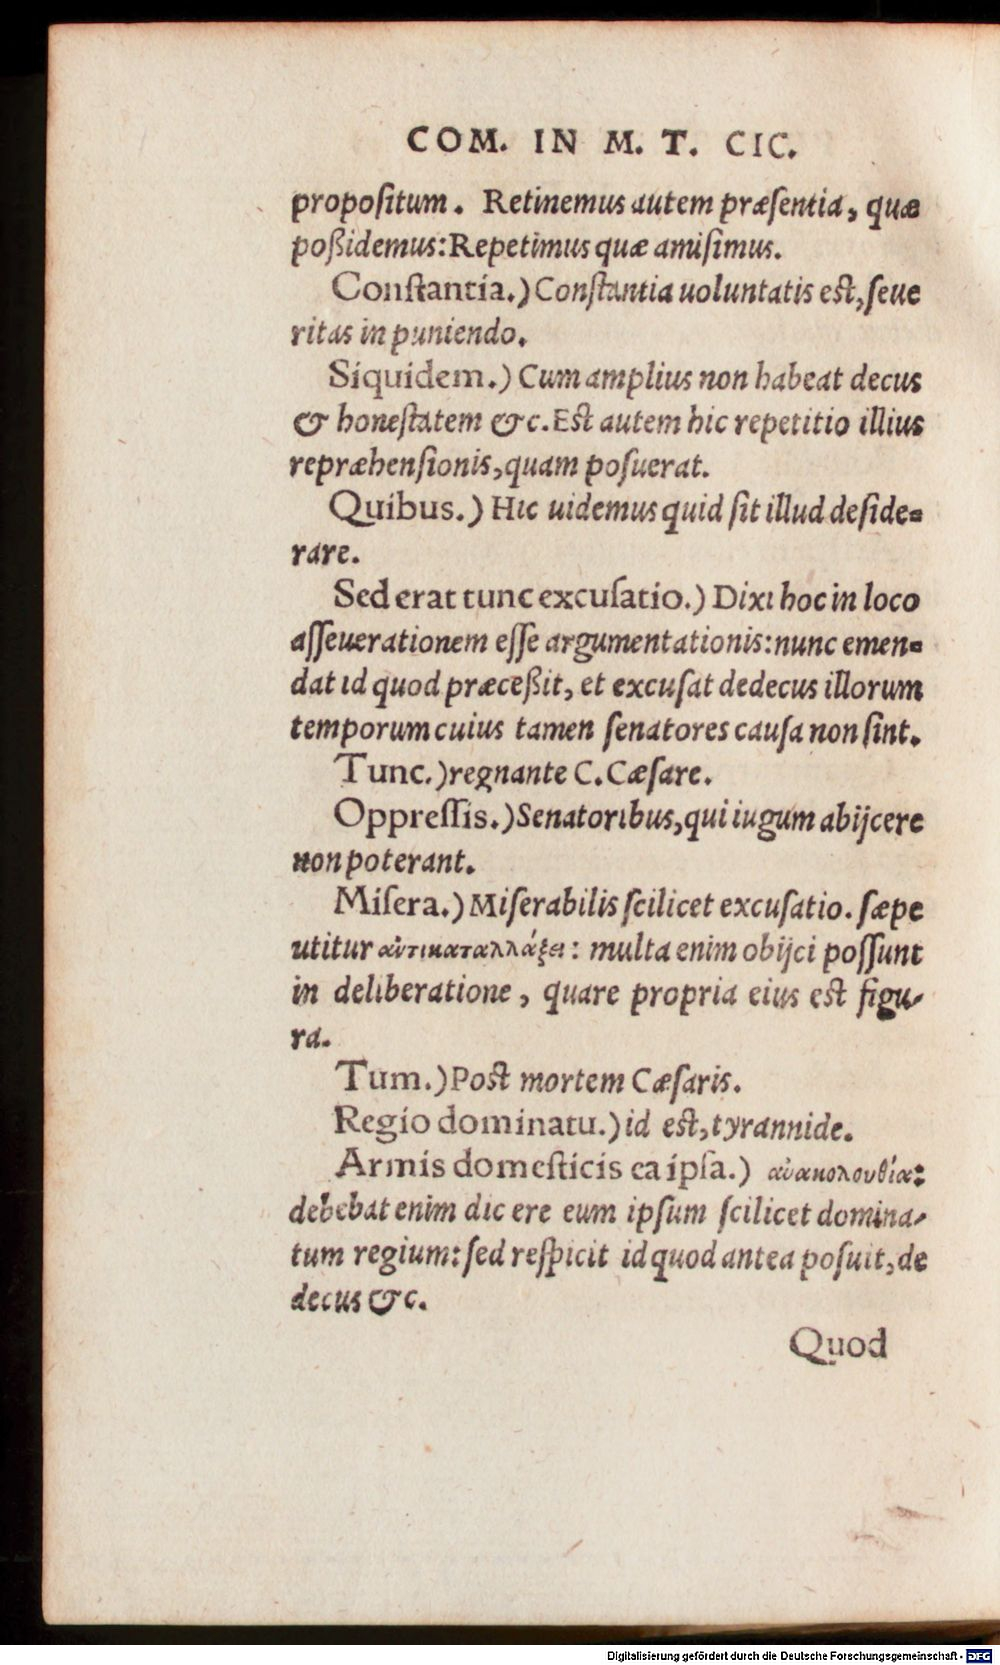 COM. IN M. T. CIC.
propositum. Retinemus autem præsentia, quæ
poßidemus: Repetimus quæ amisimus.
Constantia.) Constantia uoluntatis est, seue
ritas in puniendo.
Siquidem.) Cum amplius non habeat decus
& honestatem &c. Est autem hic repetitio illius
repræhensionis, quam posuerat.
Quibus.) Hic uidemus quid sit illud deside=
rare.
Sed erat tunc excusatio.) Dixi hoc in loco
asseuerationem esse argumentationis: nunc emen=
dat id quod præceßit, et excusat dedecus illorum
temporum cuius tamen senatores causa non sint.
Tunc.) regnante C. Cæsare.
Oppressis.) Senatoribus, qui iugum abijcere
non poterant.
Misera.) Miserabilis scilicet excusatio. sæpe
utitur ἀντικαταλλάξει: multa enim obijci possunt
in deliberatione, quare propria eius est figu-
ra.
Tum.) Post mortem Cæsaris.
Regio dominatu.) id est, tyrannide.
Armis domesticis ea ipsa.) ἀνακολουθία:
debebat enim dicere eum ipsum scilicet domina-
tum regium: sed respicit id quod antea posuit, de
decus &c.
Quod
Digitalisierung gefördert durch die Deutsche Forschungsgemeinschaft - DFG